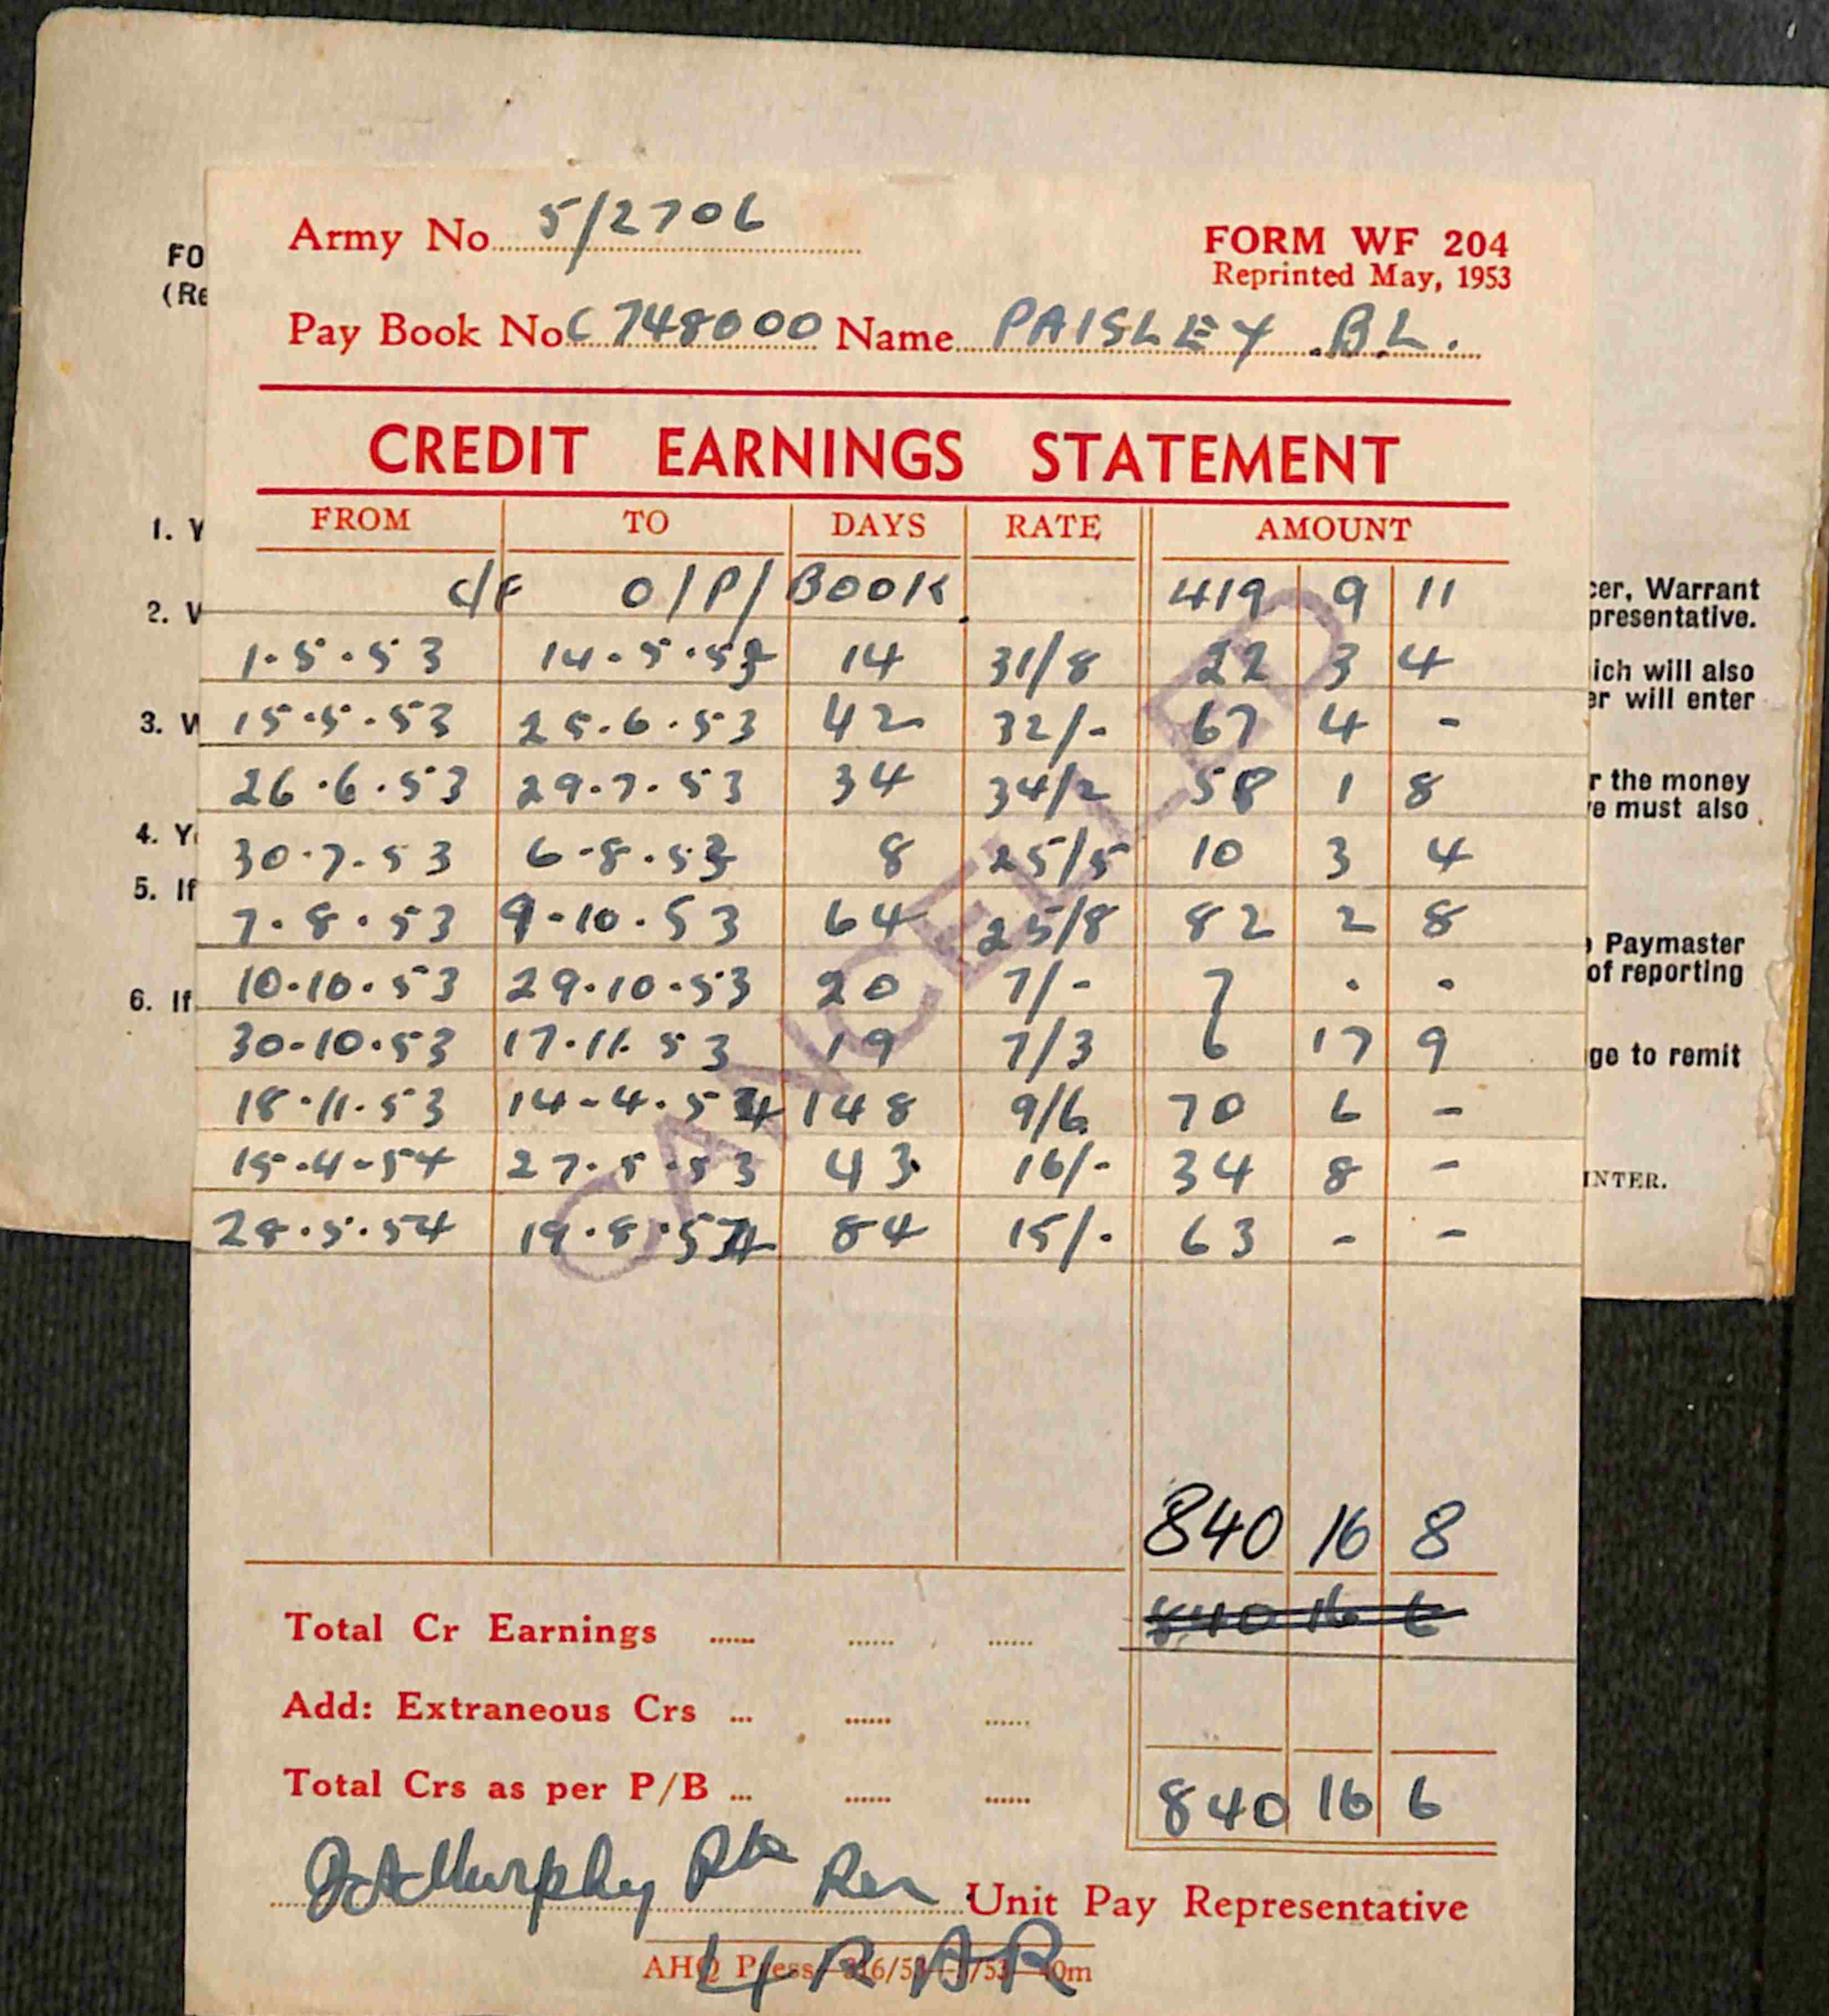 Army No. 5/2706
FORM WF 204
Reprinted May, 1953
Pay Book No. C748000 Name PAISLEY B.L.
CREDIT EARNINGS STATEMENT
FROM TO DAYS RATE AMOUNT
c/F O/P/BOOK 419 9 11
1.5.53 14.5.53 14 31/8 22 3 4
15.5.53 25.6.53 42 32/- 67 4 -
26.6.53 29.7.53 34 34/2 58 1 8
30.7.53 6.8.53 8 25/5 10 3 4
7.8.53 9.10.53 64 25/8 82 2 8
10.10.53 29.10.53 20 7/- 7 . .
30.10.53 17.11.53 19 7/3 6 17 9
18.11.53 14.4.54 148 9/6 70 6 -
15.4.54 27.5.53 43 16/- 34 8 -
28.5.54 19.8.54 84 15/- 63 - -
CANCELLED
840 16 8
Total Cr Earnings 840 16 6
Add: Extraneous Crs
Total Crs as per P/B 840 16 6
Murphy Pte Unit Pay Representative
AHQ Press
4 RAR
FO
(Re
1. Y
2. V
3. W
4. Y
5. If
6. If
cer, Warrant
presentative.
ich will also
er will enter
r the money
e must also
Paymaster
of reporting
ge to remit
INTER.